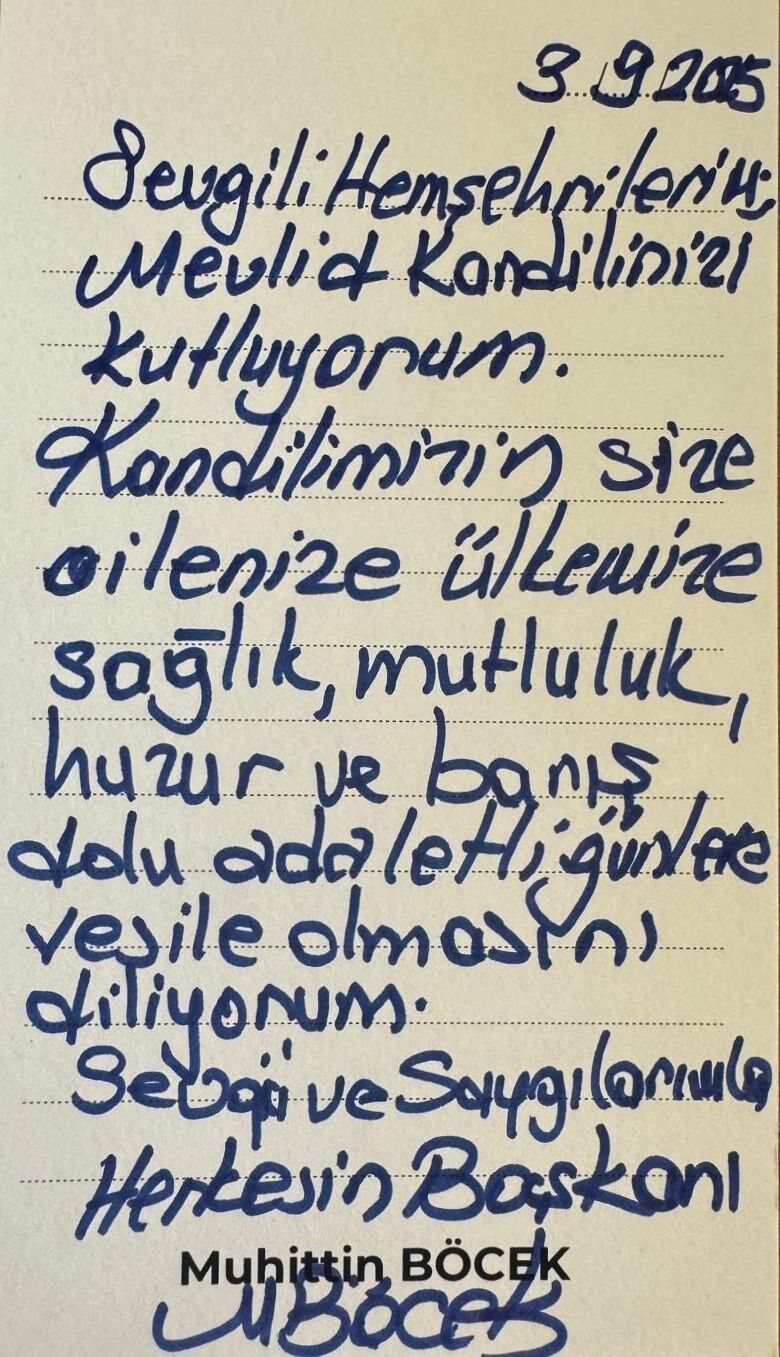 3.9.2025
Sevgili Hemşehrilerim;
Mevlid Kandilinizi
kutluyorum.
Kandilimizin size
ailenize ülkemize
sağlık, mutluluk,
huzur ve barış
dolu adaletli günlere
vesile olmasını
diliyorum.
Sevgi ve Saygılarımla
Herkesin Başkanı
Muhittin BÖCEK
MBöcek